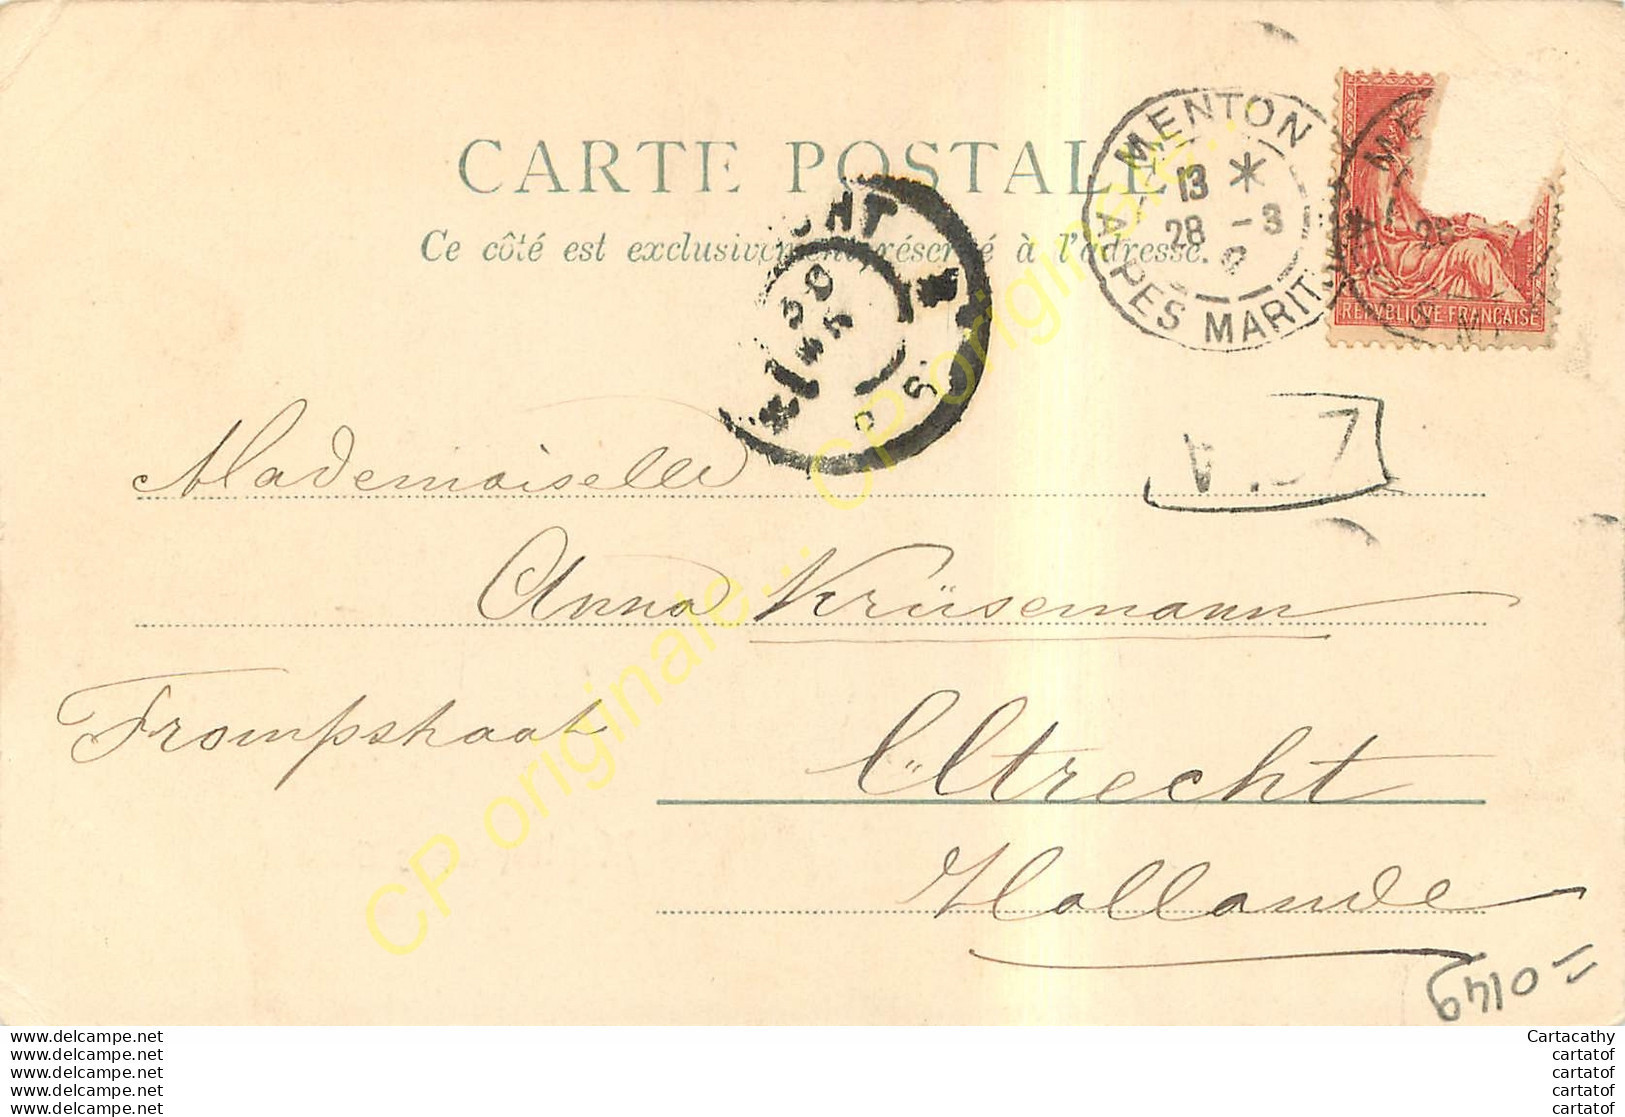 CARTE POSTALE
Ce côté est exclusivement réservé à l'adresse.
MENTON
13 *
28 -3
ALPES MARIT.
REPUBLIQUE FRANÇAISE
Mademoiselle
Anna Krüsemann
Trompstraat
Utrecht
Hollande
CP originale... CP originale...
delcampe.net
delcampe.net
delcampe.net
delcampe.net
delcampe.net
Cartacathy
cartatof
cartatof
cartatof
cartatof